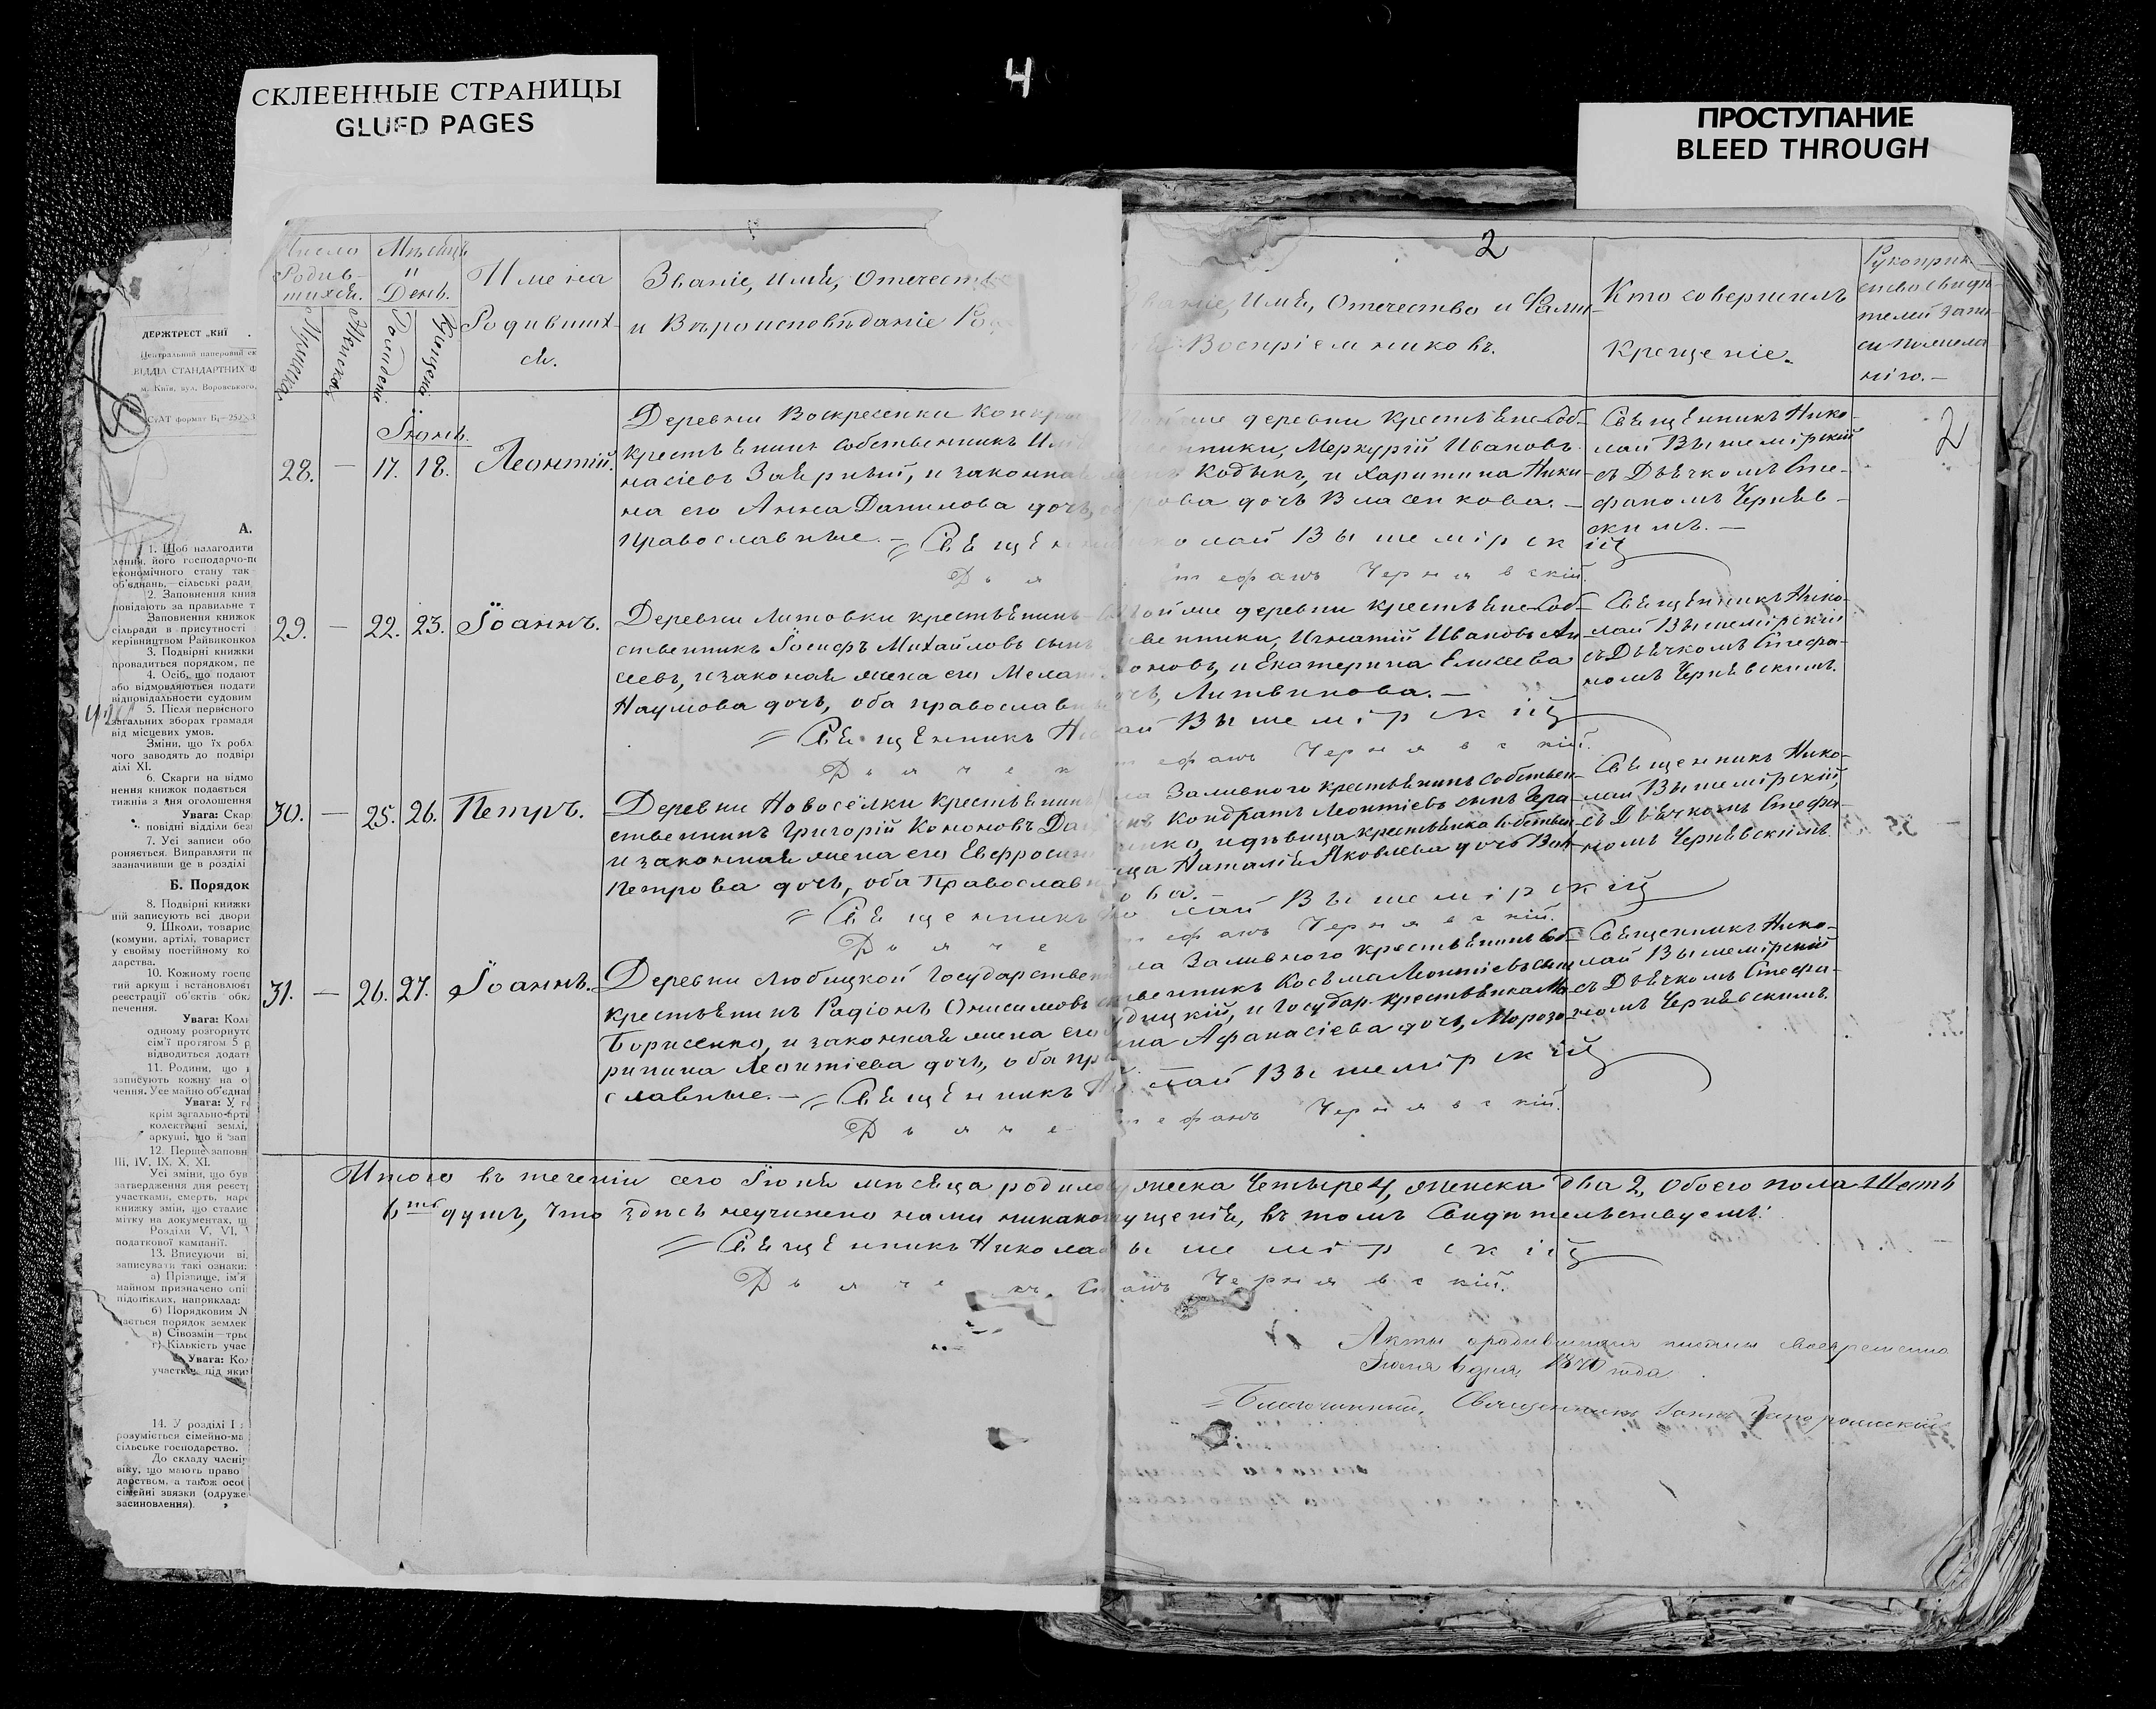 4
СКЛЕЕННЫЕ СТРАНИЦЫ
GLUED PAGES
ПРОСТУПАНИЕ
BLEED THROUGH
ДЕРЖТРЕСТ „КИЇ
Центральний паперовий ск
ВІДДІЛ СТАНДАРТНИХ Ф
м. Київ, вул. Воровського,
А.
1. Щоб налагодити
лення, його господарчо-по
економічного стану так
об'єднань,—сільські ради
2. Заповнення книж
повідають за правильне т
Заповнення книжок
сільради в присутності
керівництвом Райвиконком
3. Подвірні книжки
провадиться порядком, пе
4. Осіб, що подают
або відмовляються подати
відповідальности судовим
5. Після первісного
загальних зборах громадя
від місцевих умов.
Зміни, що їх робл
чого заводять до подвірн
ділі XI.
6. Скарги на відмо
нення книжок подається
тижнів з дня оголошення
Увага: Скар
повідні відділи без
7. Усі записи обо
роняється. Виправляти по
зазначивши це в розділі
Б. Порядок
8. Подвірні книжки
ній записують всі двори
9. Школи, товарис
(комуни, артілі, товарист
у свойму постійному ко
дарства.
10. Кожному госпо
тий аркуш і встановлюєт
реєстрації об'єктів обкл
печення.
Увага: Коли
одному розгорнуто
сім'ї протягом 5 р
відводиться додатк
11. Родини, що
записують кожну на о
чення. Усе майно об'єднан
Увага: У
крім загально-арті
колективні землі,
аркуші, що й зап
12. Перше заповн
III, IV, IX, X, XI.
Усі зміни, що був
затвердження дня реєстр
участками, смерть, наро
книжку змін, що сталис
мітку на документах, щ
Розділи V, VI,
податкової кампанії.
13. Вписуючи ві
записувати такі ознаки:
а) Прізвище, ім'я
майном призначено опі
підопіклих, наприклад:
б) Порядковим №
чається порядок землек
в) Сівозмін—трьо
г) Кількість учас
Увага: Кол
участки, під яки
14. У розділі I
розуміється сімейно-ма
сільське господарство.
До складу члені
віку, що мають право
дарством, а також особ
сімейні звязки (одруже
засиновлення).
Число Родив-шихся.
Мѣсяцъ и День.
Имена Родивших-ся.
Званіе, Имя, Отечество
и Вѣроисповѣданіе Ро
Мужеска
Женска
Рожденія
Крещенія
2
Званіе, Имя, Отечество и Фами-
Воспріемниковъ.
Кто совершилъ
Крещеніе.
Рукоприк-
ство свидѣ-
телей запи-
си по жела
нію.—
Іюнь.
28. — 17. 18. Леонтій.
Деревни Воскресенки
крестьянинъ собственникъ
насіевъ Заярный, и законная
на его Анна Данилова дочь,
православные. — Священн
той же деревни крестьяне Соб-
ственники, Меркурій Ивановъ
Кодыкъ, и Харитина Ники-
рова дочь Власенкова.—
колай Вышемірскій
Дья
тефанъ Чернявскій.
Священникъ Нико-
лай Вышемірскій
съ Дьячкомъ Сте-
фаномъ Черняв-
скимъ.—
2
29. — 22. 23. Іоаннъ.
Деревни Литовки крестьянинъ
ственникъ Іосифъ Михайловъ сынъ
сеевъ, и законная жена его Мелан
Наумова дочь, оба православн
Священникъ Н
Дьячек
Той же деревни крестьяне Соб-
ственники, Игнатій Ивановъ Ли
оновъ, и Екатерина Елисеева
дочь, Литвинова.—
лай Вышемірскій
тефанъ Чернявскій.
Священникъ Нико-
лай Вышемірскій
съ Дьячкомъ Стефа-
номъ Чернявскимъ.
30. — 25. 26. Петръ.
Деревни Новосёлки крестьянинъ
ственникъ Григорій Кононовъ Да
и законная жена его Евфросин
Петрова дочь, оба Православн
Священникъ
Дьяче
ла Заливного крестьянинъ собствен-
никъ Кондратъ Леонтіевъ сынъ Гера-
енко, и дѣвица крестьянка собствен-
ница Наталія Яковлева дочь Вой-
ова.—
колай Вышемірскій
тефанъ Чернявскій.
Священникъ Нико-
лай Вышемірскій,
съ Дьячкомъ Стефа-
номъ Чернявскимъ.
31. — 26. 27. Іоаннъ.
Деревни Любицкой Государствен
крестьянинъ Радіонъ Онисимовъ
Борисенко, и законная жена его
рипина Леонтіева дочь, оба пра
славные. — Священникъ
Дьяче
ла Заливного крестьянинъ Соб-
ственникъ Косьма Леонтіевъ сынъ
дицкій, и Государ. крестьянка Ма-
рина Афанасіева дочь, Морозо-
лай Вышемірскій
тефанъ Чернявскій.
Священникъ Нико-
лай Вышемірскій
съ Дьячкомъ Стефа-
номъ Чернявскимъ.
Итого въ теченіи сего Іюня мѣсяца родилось мужеска Четыре 4, женска два 2, обоего пола Шесть
6ть душъ, что здѣсь неучинено нами никакого упущенія, въ томъ Свидѣтельствуемъ:
Священникъ Николай Вышемірскій
Дьячекъ Стефанъ Чернявскій.
Акты о родившихся писаны своевременно
Іюля 6 дня 1870 года.
Благочинный, Священникъ